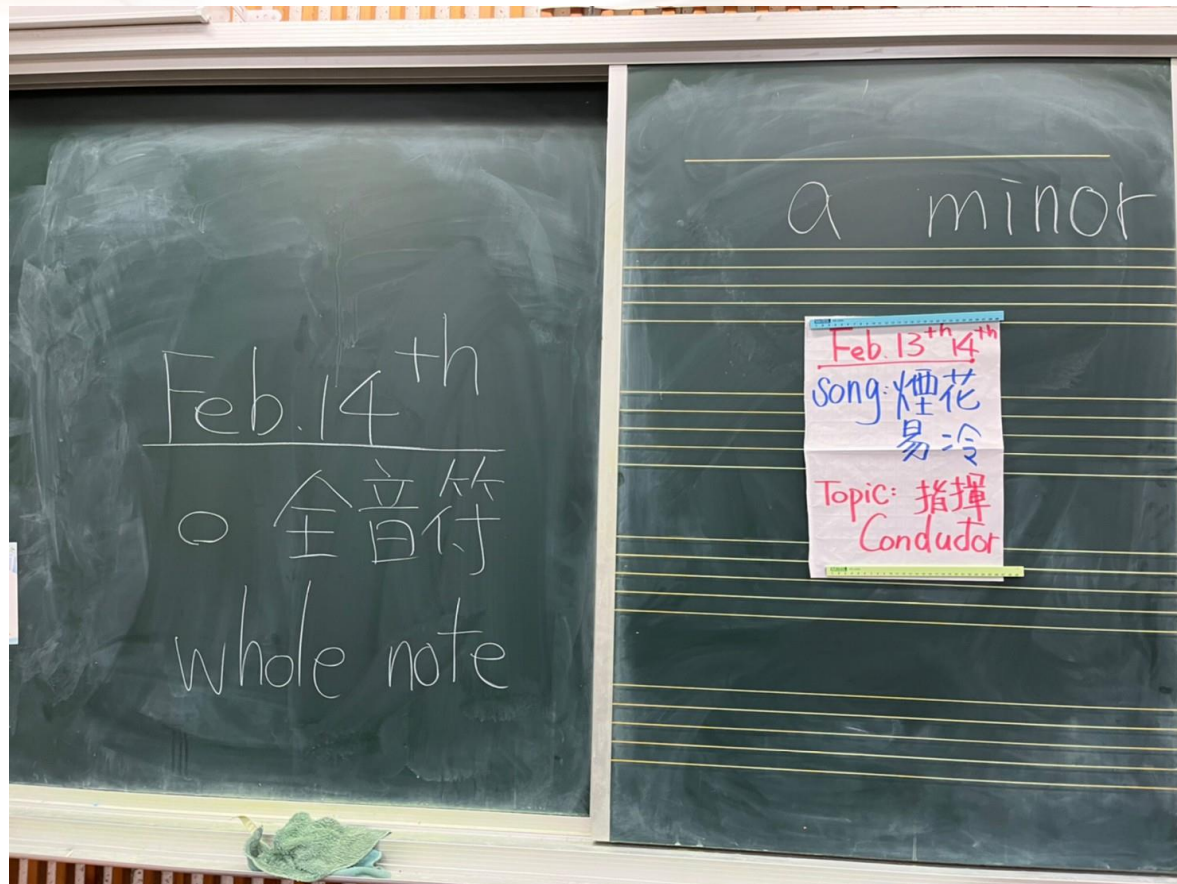 Feb. 14th
o 全音符
whole note
a minor
Feb. 13th 14th
song: 煙花
易冷
Topic: 指揮
Conductor